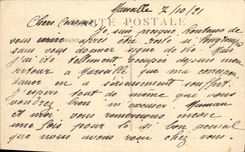 Marseille 7/10/21
CARTE POSTALE
Chers Cousins
Je suis presque honteux de
vous avoir été si longtemps
sans vous donner signe de vie. Mais
j'ai été tellement occupée depuis mon
retour à Marseille que ma
J'espère tout de même que vous
voudrez bien m'excuser. Maman
et moi vous remercions encore
une fois pour le si bon accueil
que nous avons reçu chez vous.